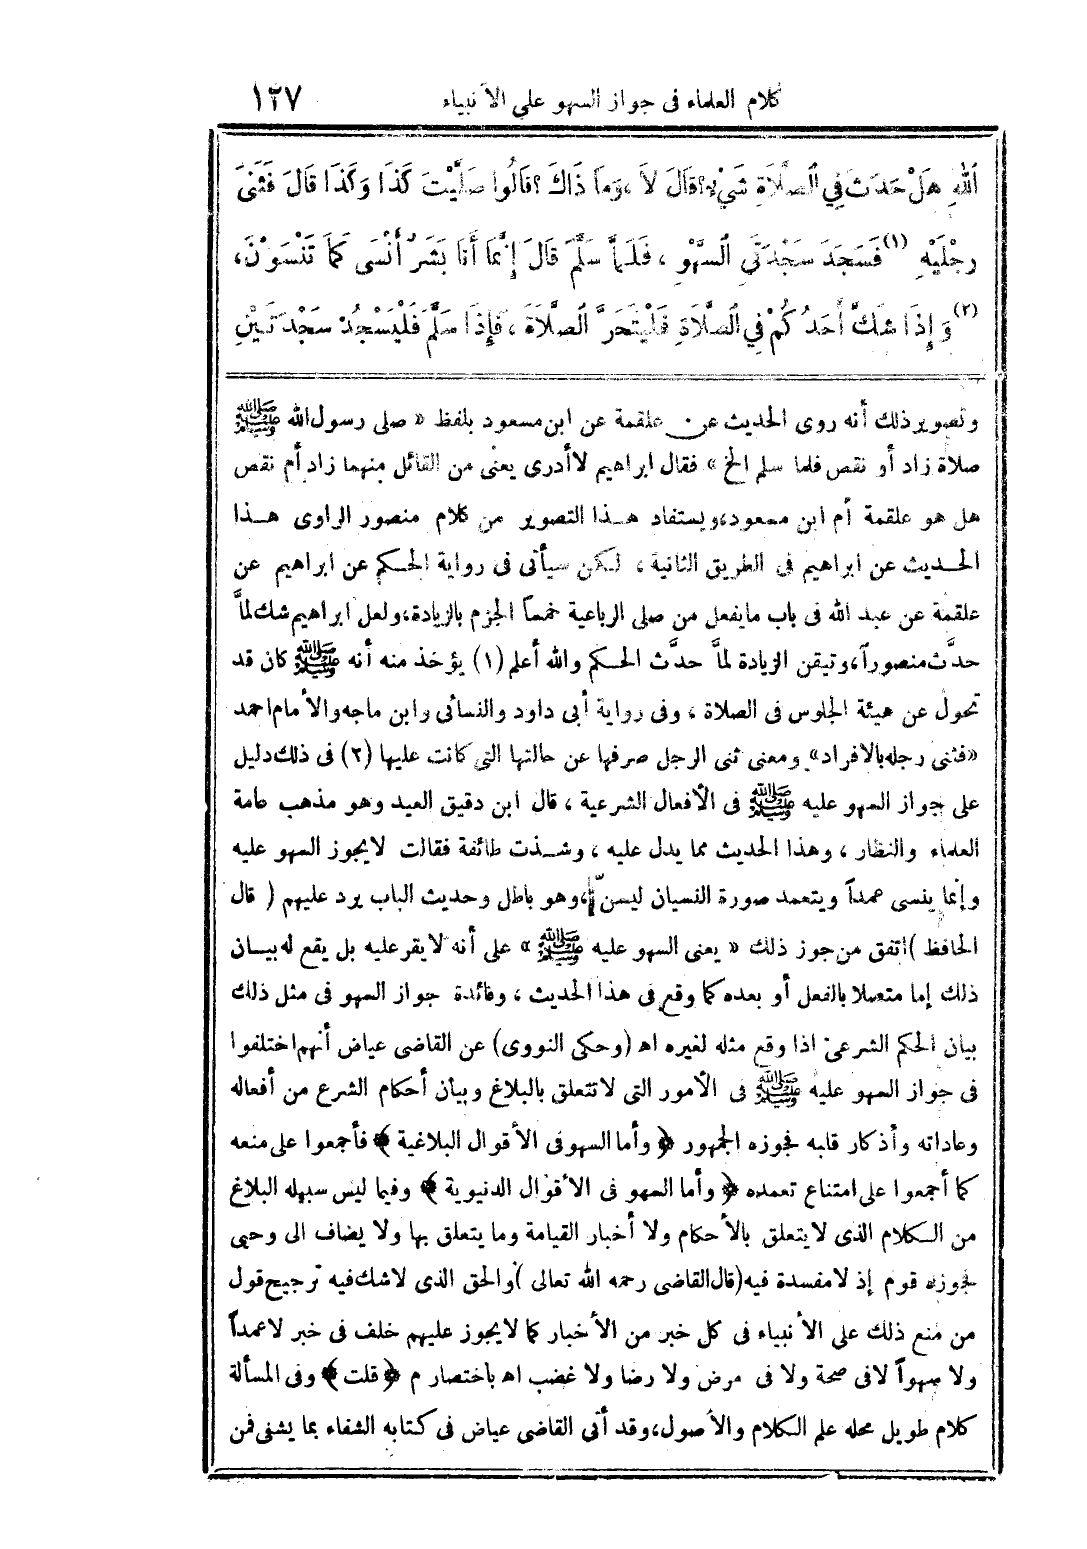 كلام العلماء فى جواز السهو على الأنبياء ١٢٧
اللهِ هَلْ حَدَثَ فِي الصَّلَاةِ شَيْءٌ؟ قَالَ لَا، وَمَا ذَاكَ؟ قَالُوا صَلَّيْتَ كَذَا وَكَذَا قَالَ فَثَنَىَ
رِجْلَيْهِ (١) فَسَجَدَ سَجْدَتَيِ السَّهْوِ، فَلَمَّا سَلَّمَ قَالَ إِنَّمَا أَنَا بَشَرٌ أَنْسَى كَمَا تَنْسَوْنَ،
(٢) وَإِذَا شَكَّ أَحَدُكُمْ فِي الصَّلَاةِ فَلْيَتَحَرَّ الصَّلَاةَ، فَإِذَا سَلَّمَ فَلْيَسْجُدْ سَجْدَتَيْنِ
وتصوير ذلك أنه روى الحديث عن علقمة عن ابن مسعود بلفظ « صلى رسول الله ﷺ
صلاة زاد أو نقص فلما سلم الخ » فقال ابراهيم لا أدرى يعنى من القائل منهما زاد أم نقص
هل هو علقمة أم ابن مسعود، ويستفاد هذا التصوير من كلام منصور الراوى هذا
الحديث عن ابراهيم فى الطريق الثانية ، لكن سيأتى فى رواية الحكم عن ابراهيم عن
علقمة عن عبد الله فى باب ما يفعل من صلى الرباعية خمساً الجزم بالزيادة، ولعل ابراهيم شك لمَّا
حدَّث منصوراً، وتيقن الزيادة لمَّا حدَّث الحكم والله أعلم (١) يؤخذ منه أنه ﷺ كان قد
تحول عن هيئة الجلوس فى الصلاة ، وفى رواية أبى داود والنسائى وابن ماجه والأمام احمد
«فثنى رجله بالافراد» ومعنى ثنى الرجل صرفها عن حالتها التى كانت عليها (٢) فى ذلك دليل
على جواز السهو عليه ﷺ فى الأفعال الشرعية ، قال ابن دقيق العيد وهو مذهب عامة
العلماء والنظار ، وهذا الحديث مما يدل عليه ، وشذت طائفة فقالت لا يجوز السهو عليه
وإنما ينسى عمداً ويتعمد صورة النسيان ليسنّ، وهو باطل وحديث الباب يرد عليهم ( قال
الحافظ ) اتفق من جوز ذلك « يعنى السهو عليه ﷺ » على أنه لا يقر عليه بل يقع له بيان
ذلك إما متصلا بالفعل أو بعده كما وقع فى هذا الحديث ، وفائدة جواز السهو فى مثل ذلك
بيان الحكم الشرعى اذا وقع مثله لغيره اه (وحكى النووى) عن القاضى عياض أنهم اختلفوا
فى جواز السهو عليه ﷺ فى الأمور التى لا تتعلق بالبلاغ وبيان أحكام الشرع من أفعاله
وعاداته وأذكار قلبه فجوزه الجمهور ﴿ وأما السهو فى الأقوال البلاغية ﴾ فأجمعوا على منعه
كما أجمعوا على امتناع تعمده ﴿ وأما السهو فى الأقوال الدنيوية ﴾ وفيما ليس سبيله البلاغ
من الكلام الذى لا يتعلق بالأحكام ولا أخبار القيامة وما يتعلق بها ولا يضاف الى وحى
فجوزه قوم إذ لا مفسدة فيه (قال القاضى رحمه الله تعالى ) والحق الذى لا شك فيه ترجيح قول
من منع ذلك على الأنبياء فى كل خبر من الأخبار كما لا يجوز عليهم خلف فى خبر لا عمداً
ولا سهواً لا فى صحة ولا فى مرض ولا رضا ولا غضب اه باختصار م ﴿ قلت ﴾ وفى المسألة
كلام طويل محله علم الكلام والأصول، وقد أتى القاضى عياض فى كتابه الشفاء بما يشفى فمن